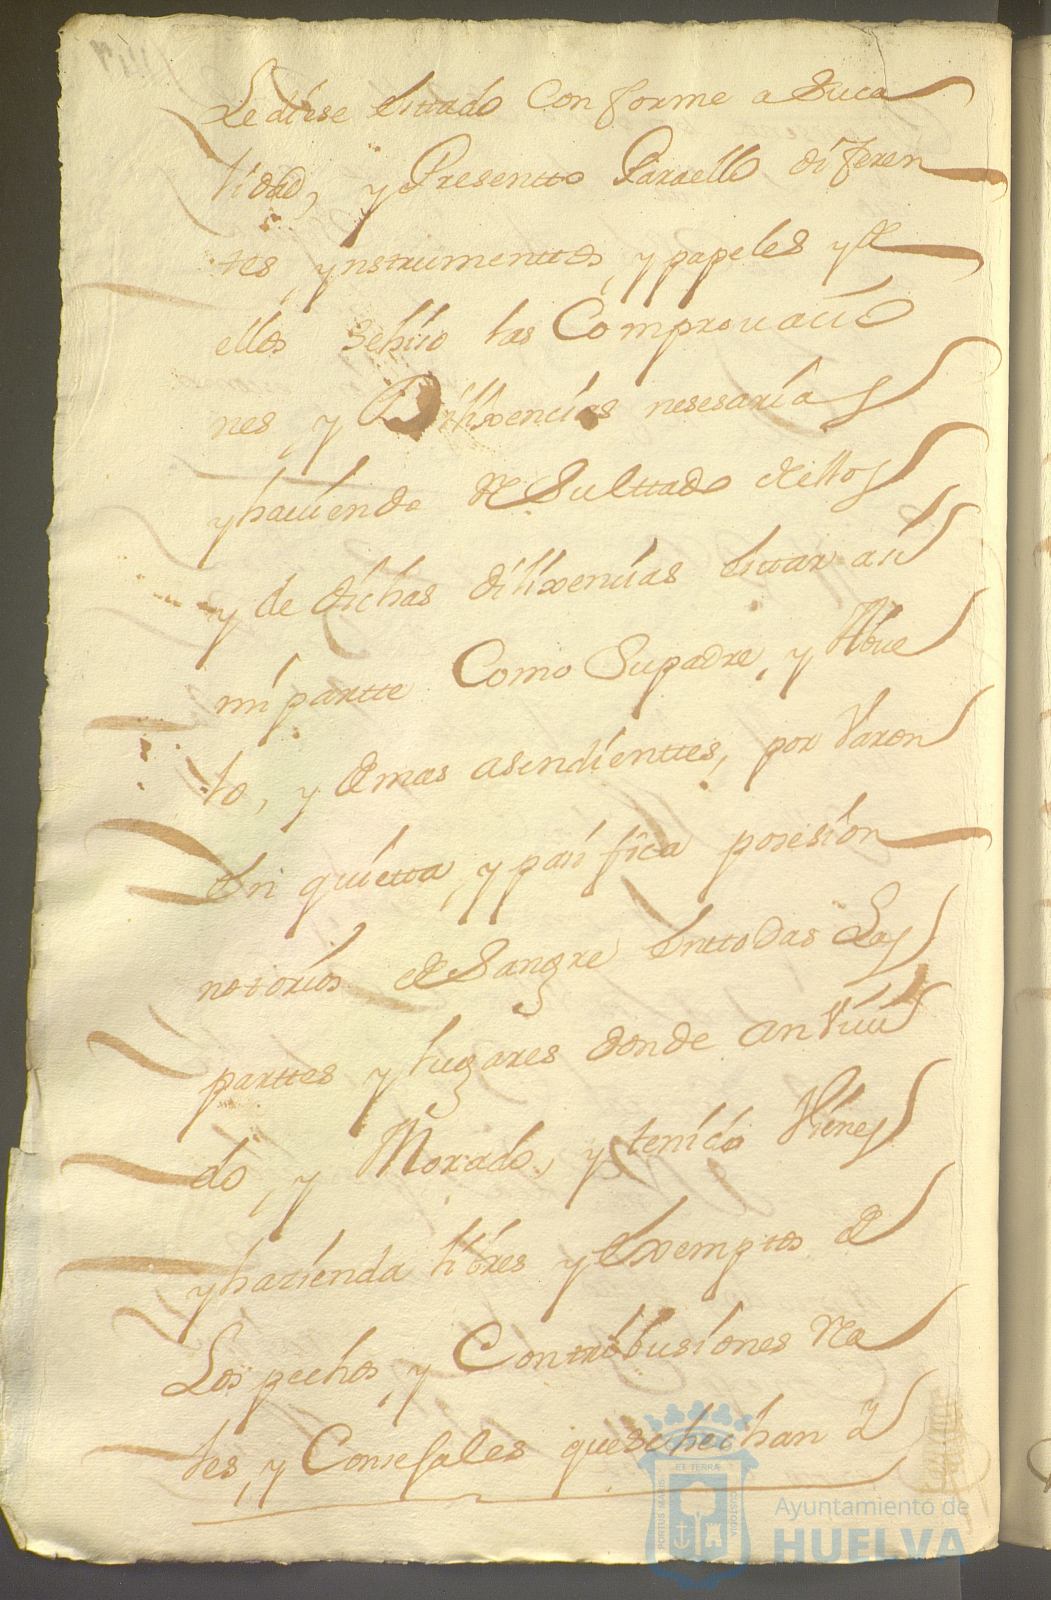 Le diese Estado Conforme a Suca
lidad, y Presentto Paraello diferen
tes ynstrumenttos, y papeles y de
ellos sehizo las Comprouacio
nes y Dilixencias nesesarias
yhauiendo Resulttado dellos
y de dichas dilixencias Estar asi
mi partte Como Supadre, y Abue
lo, y demas asendienttes, por Varon
En quietta, y pasifica posesion
notorios de Sangre Enttodas Las
parttes y lugares donde an Viui
do, y Morado, y tenido Vienes
yhazienda libres y Exemptos de
Los pechos, y Contribusiones Rea
les, y Consejales quesehechan y
ET TERRÆ
PORTUS MARIS
CUSTODIA
Ayuntamiento de
HUELVA